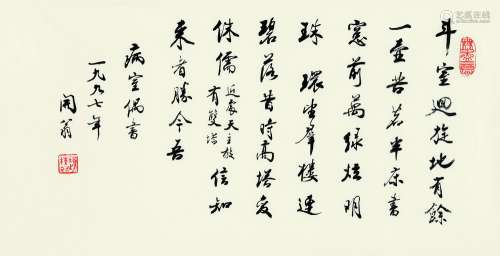 斗室迴旋地有餘
一壺苦茗半床書
窻前萬绿炫明
珠環坐羣樓連
碧落昔時高塔反
侏儒近處天主教有雙塔信知
来者勝今吾
病室偶書
一九九七年
開翁